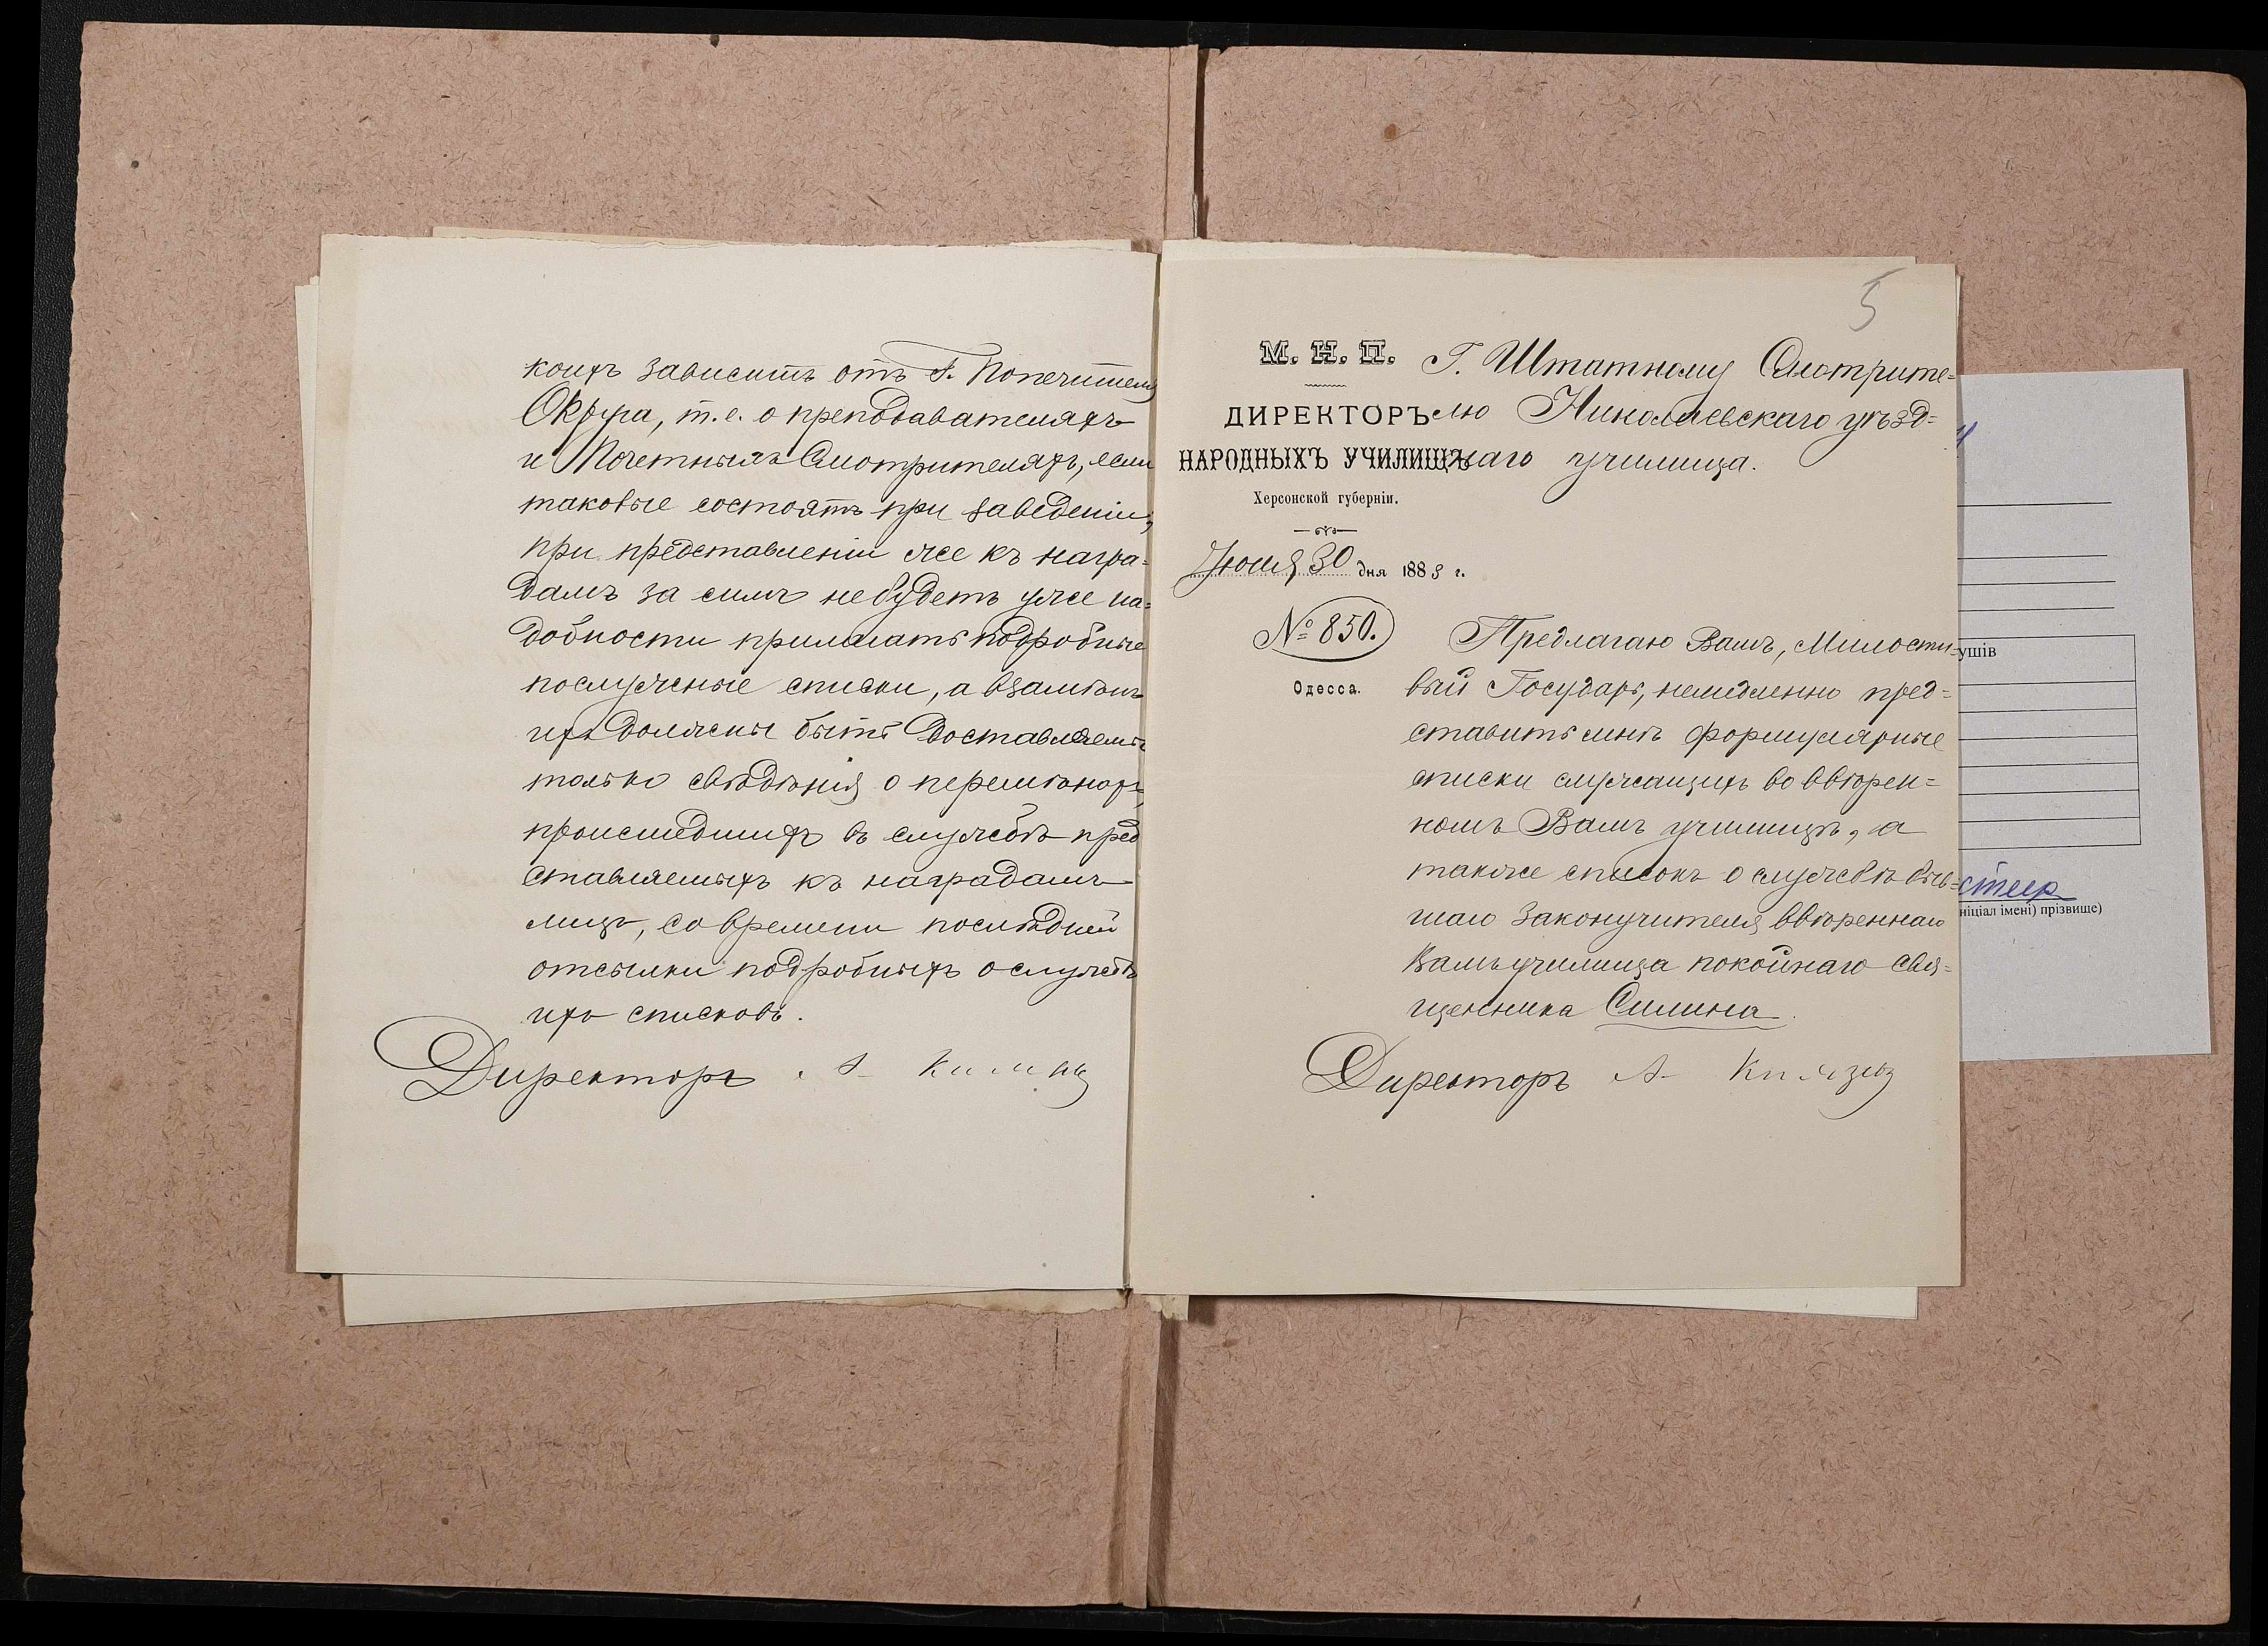 коихъ зависитъ отъ Г. Попечителя
Округа, т.е. о преподавателяхъ
и Почетныхъ Смотрителяхъ, если
таковые состоятъ при заведеніи;
при представленіи же къ награ=
дамъ за симъ не будетъ уже на=
добности прилагать подробные
послужные списки, а взамѣнъ
ихъ должны быть доставляемы
только свѣдѣнія о перемѣнахъ,
происшедшихъ въ службѣ пред
ставляемыхъ къ наградамъ
лицъ, со времени послѣдней
отсылки подробныхъ о службѣ
ихъ списковъ.
Директоръ А
5
М. Н. П.
ДИРЕКТОРЪ
НАРОДНЫХЪ УЧИЛИЩЪ
Херсонской губерніи.
30 дня 1883 г.
№ 850.
Одесса.
Г. Штатному Смотрите=
лю Николаевскаго уѣзд=
наго училища.
Предлагаю Вамъ, Милости=
вый Государь, немедленно пред=
ставить мнѣ формулярные
списки служащихъ во ввѣрен=
номъ Вамъ училищѣ, а
также списокъ о службѣ быв=
шаго законоучителя ввѣреннаго
Вамъ училища покойнаго свя=
щенника Силина.
Директоръ А
ушів
ніціал імені) прізвище)